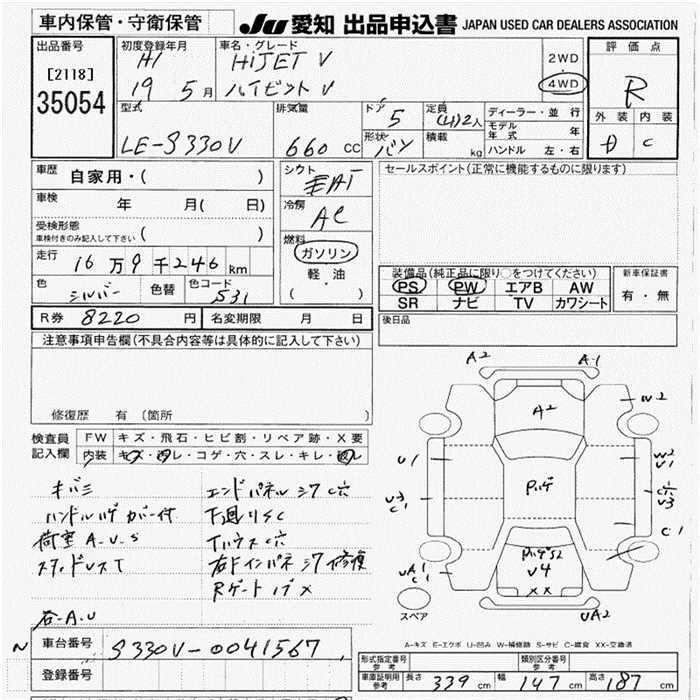 車内保管・守衛保管
JU 愛知 出品申込書 JAPAN USED CAR DEALERS ASSOCIATION
出品番号
[2118]
35054
初度登録年月
H
19 5月
車名・グレード
HiJET V
ハイゼット V
2WD
4WD
評価点
R
外装 内装
C
型式
LE-S330V
排気量
660 CC
ドア
5
形状
バン
定員
(4)2人
積載
kg
ディーラー・並行
モデル年式 年
ハンドル 左・右
車歴
自家用・( )
車検
年 月( 日)
受検形態
車検付きのみ記入して下さい ( )
走行
16万9千246km
色
シルバー
色替
色コード
S31
シフト
AT
冷房
AC
燃料
ガソリン
軽油
( )
セールスポイント(正常に機能するものに限ります)
装備品(純正品に限り○をつけてください)
PS PW エアB AW
SR ナビ TV カワシート
新車保証書
有・無
R券 8220円 名変期限 月 日
後日品
注意事項申告欄(不具合内容等は具体的に記入して下さい)
修復歴 有 (箇所
検査員記入欄
FW キズ・飛石・ヒビ割・リペア跡・X要
内装 キズ・汚レ・コゲ・穴・スレ・キレ・破レ
キバミ
ハンドルハゲ カバー付
荷室 A.U.S
各-A.U
エンドパネル シワ C穴
下廻りSC
右ドインパネ シワ修復
A2 A1
A2
W2
U1
W2
U1
U3
C1
C穴
U3
C1
UA1
C1
U4
XX
UA2
スペア
A-キズ E-エクボ U-凹み W-補修跡 S-サビ C-腐食 XX-交換済
車台番号 S330V-0041567
登録番号
形式指定番号 参考
類別区分番号 参考
車庫証明用 参考 長さ 339 cm 幅 147 cm 高さ 187 cm